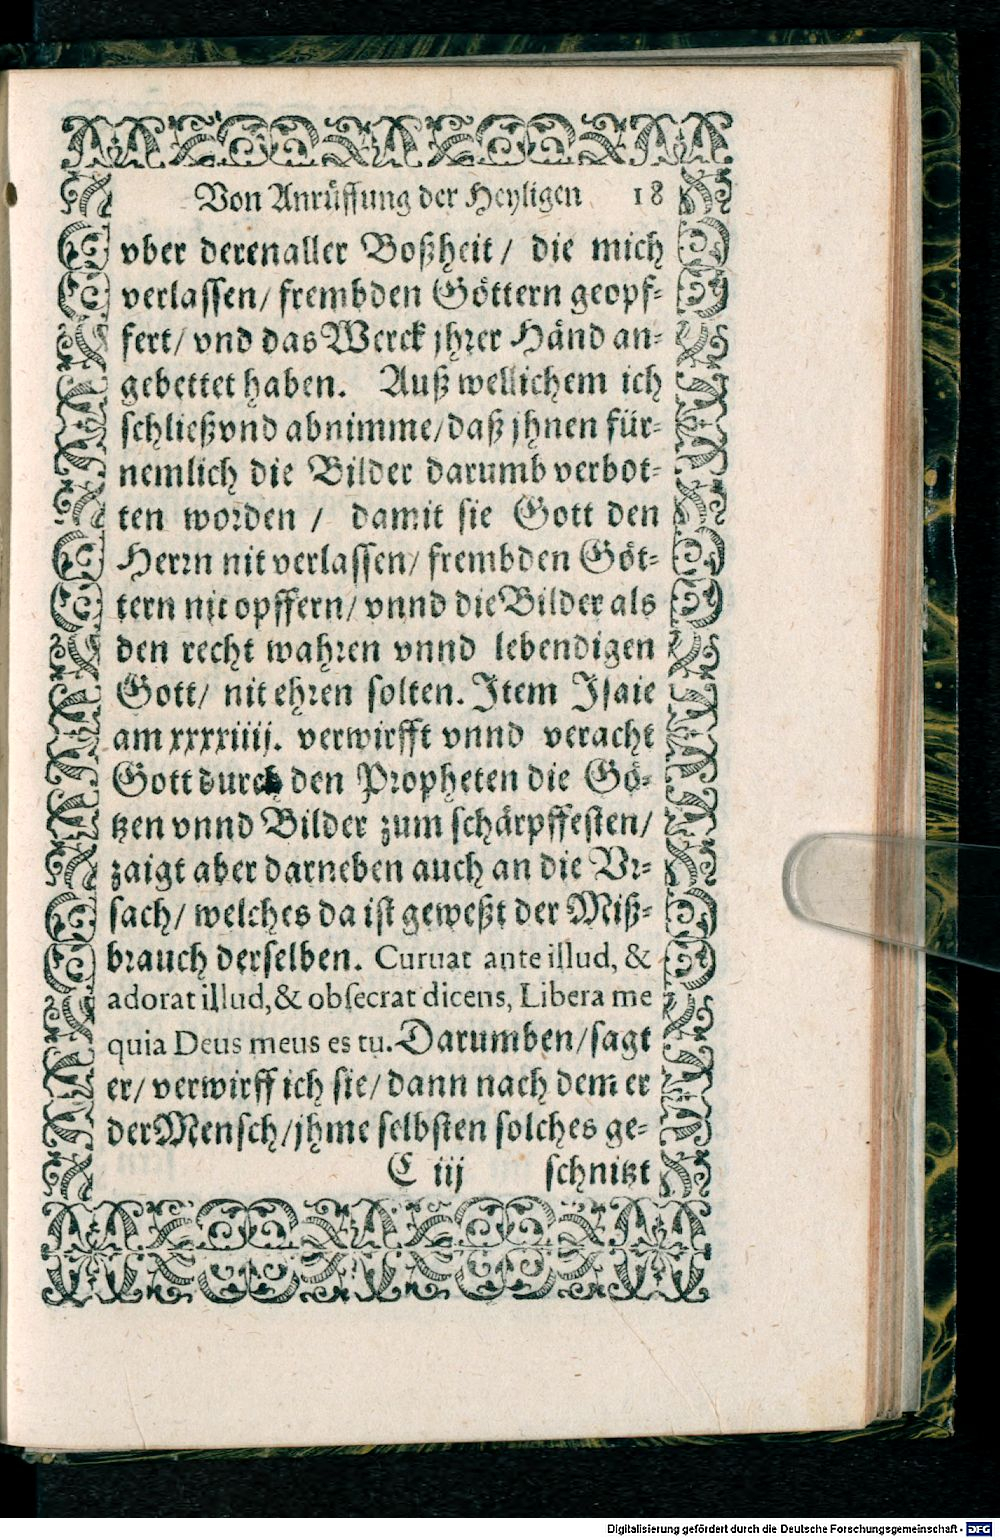 Von Anrüffung der Heyligen 18
vber derenaller Boßheit / die mich
verlassen/ frembden Göttern geopf-
fert/ vnd das Werck jhrer Händ an-
gebettet haben. Auß wellichem ich
schließ vnd abnimme/ daß jhnen für-
nemlich die Bilder darumb verbot-
ten worden / damit sie Gott den
Herrn nit verlassen/ frembden Göt-
tern nit opffern/ vnnd die Bilder als
den recht wahren vnnd lebendigen
Gott/ nit ehren solten. Item Isaie
am xxxxiiij. verwirfft vnnd veracht
Gott durch den Propheten die Gö-
tzen vnnd Bilder zum schärpffesten/
zaigt aber darneben auch an die Vr-
sach/ welches da ist geweßt der Miß-
brauch derselben. Curuat ante illud, &
adorat illud, & obsecrat dicens, Libera me
quia Deus meus es tu. Darumben/ sagt
er/ verwirff ich sie/ dann nach dem er
der Mensch/ jhme selbsten solches ge-
C iij schnitzt
Digitalisierung gefördert durch die Deutsche Forschungsgemeinschaft - DFG